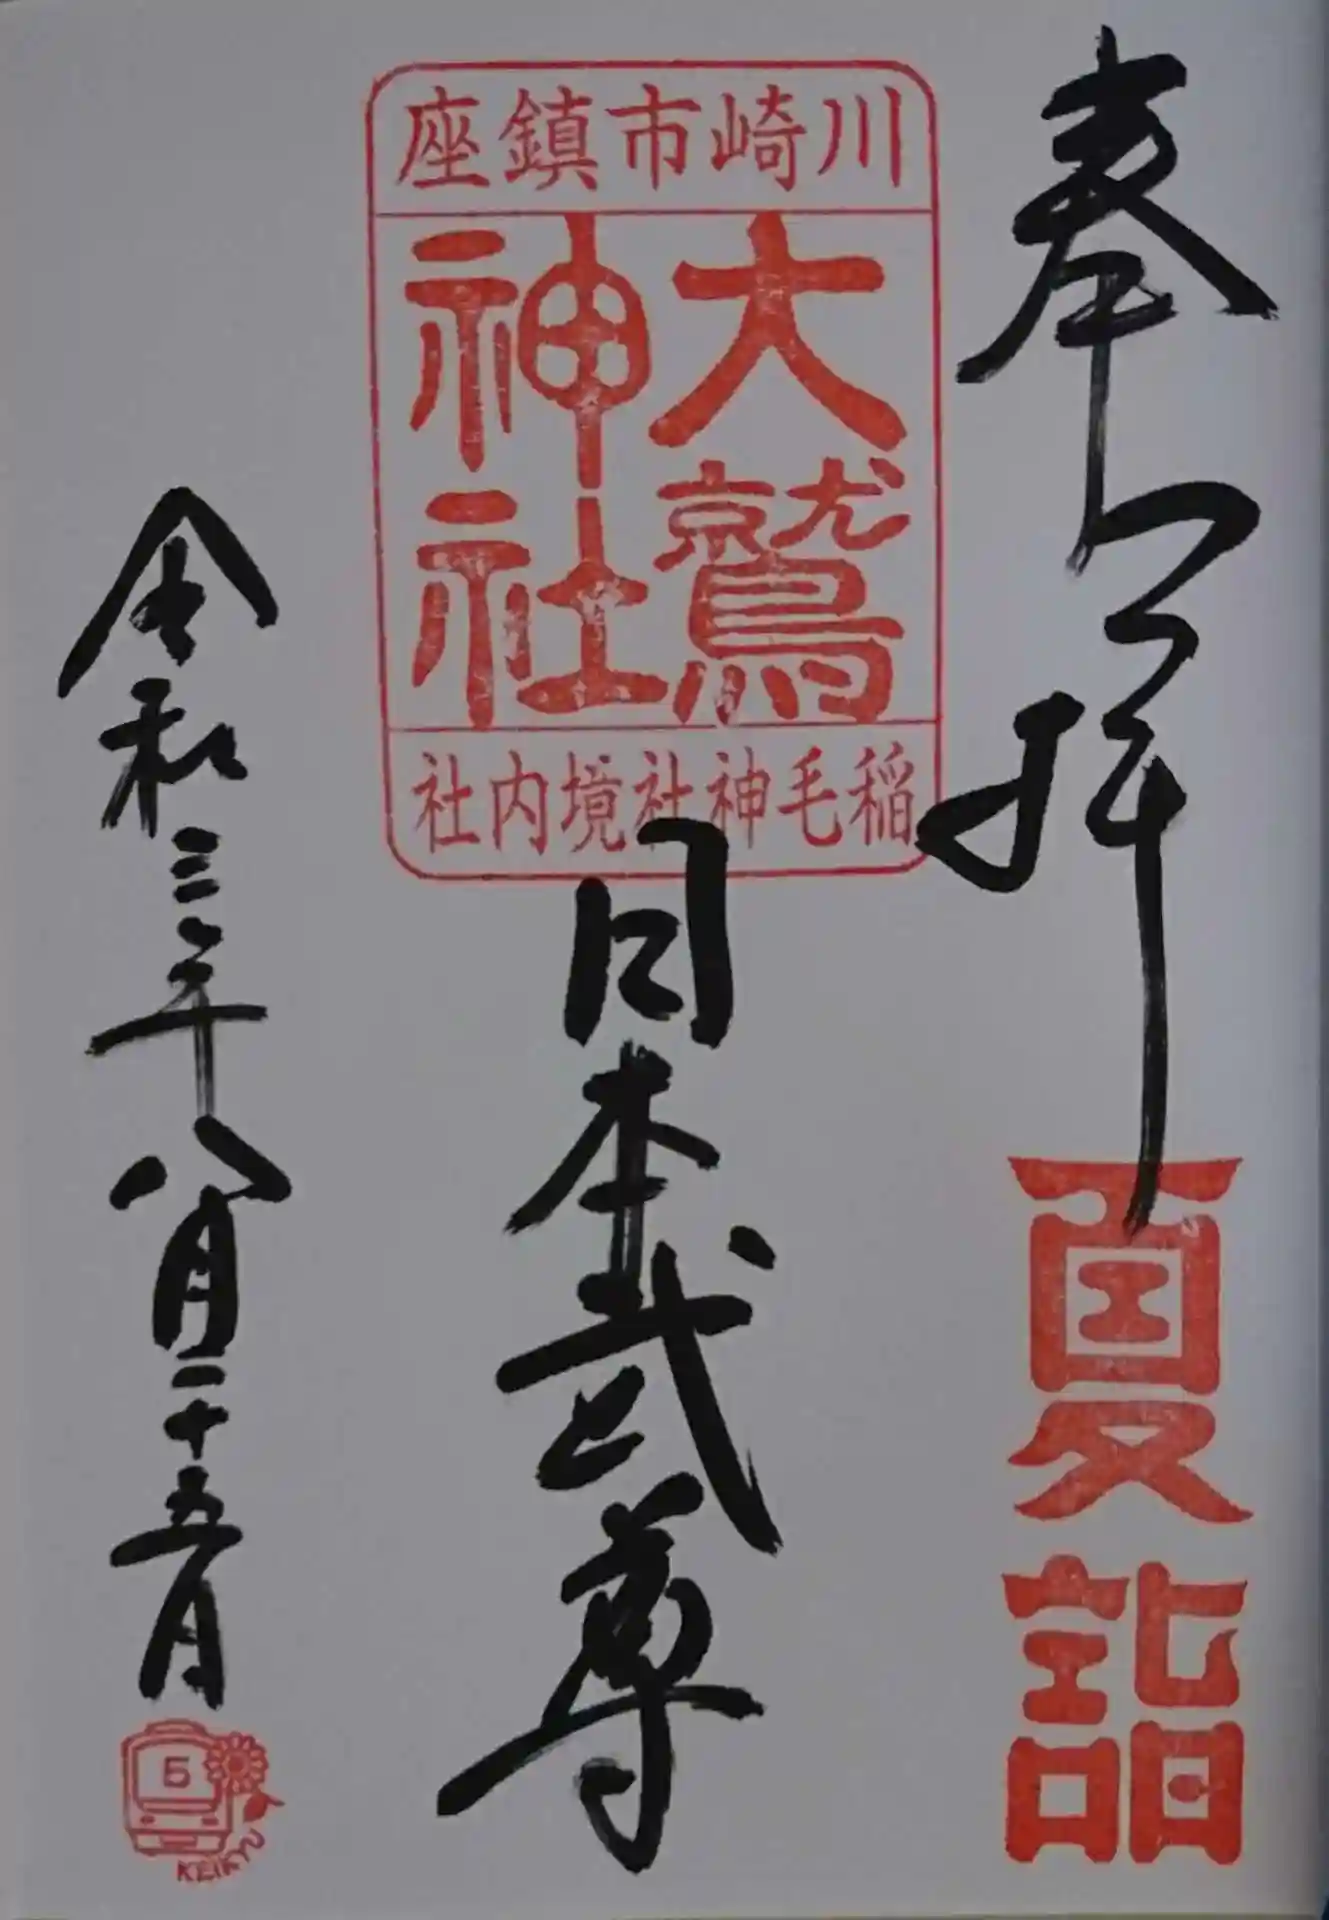 奉拝
夏詣
川崎市鎮座
大鷲
神社
稲毛神社境内社
日本武尊
令和三年八月二十五日
5
KEIKYU